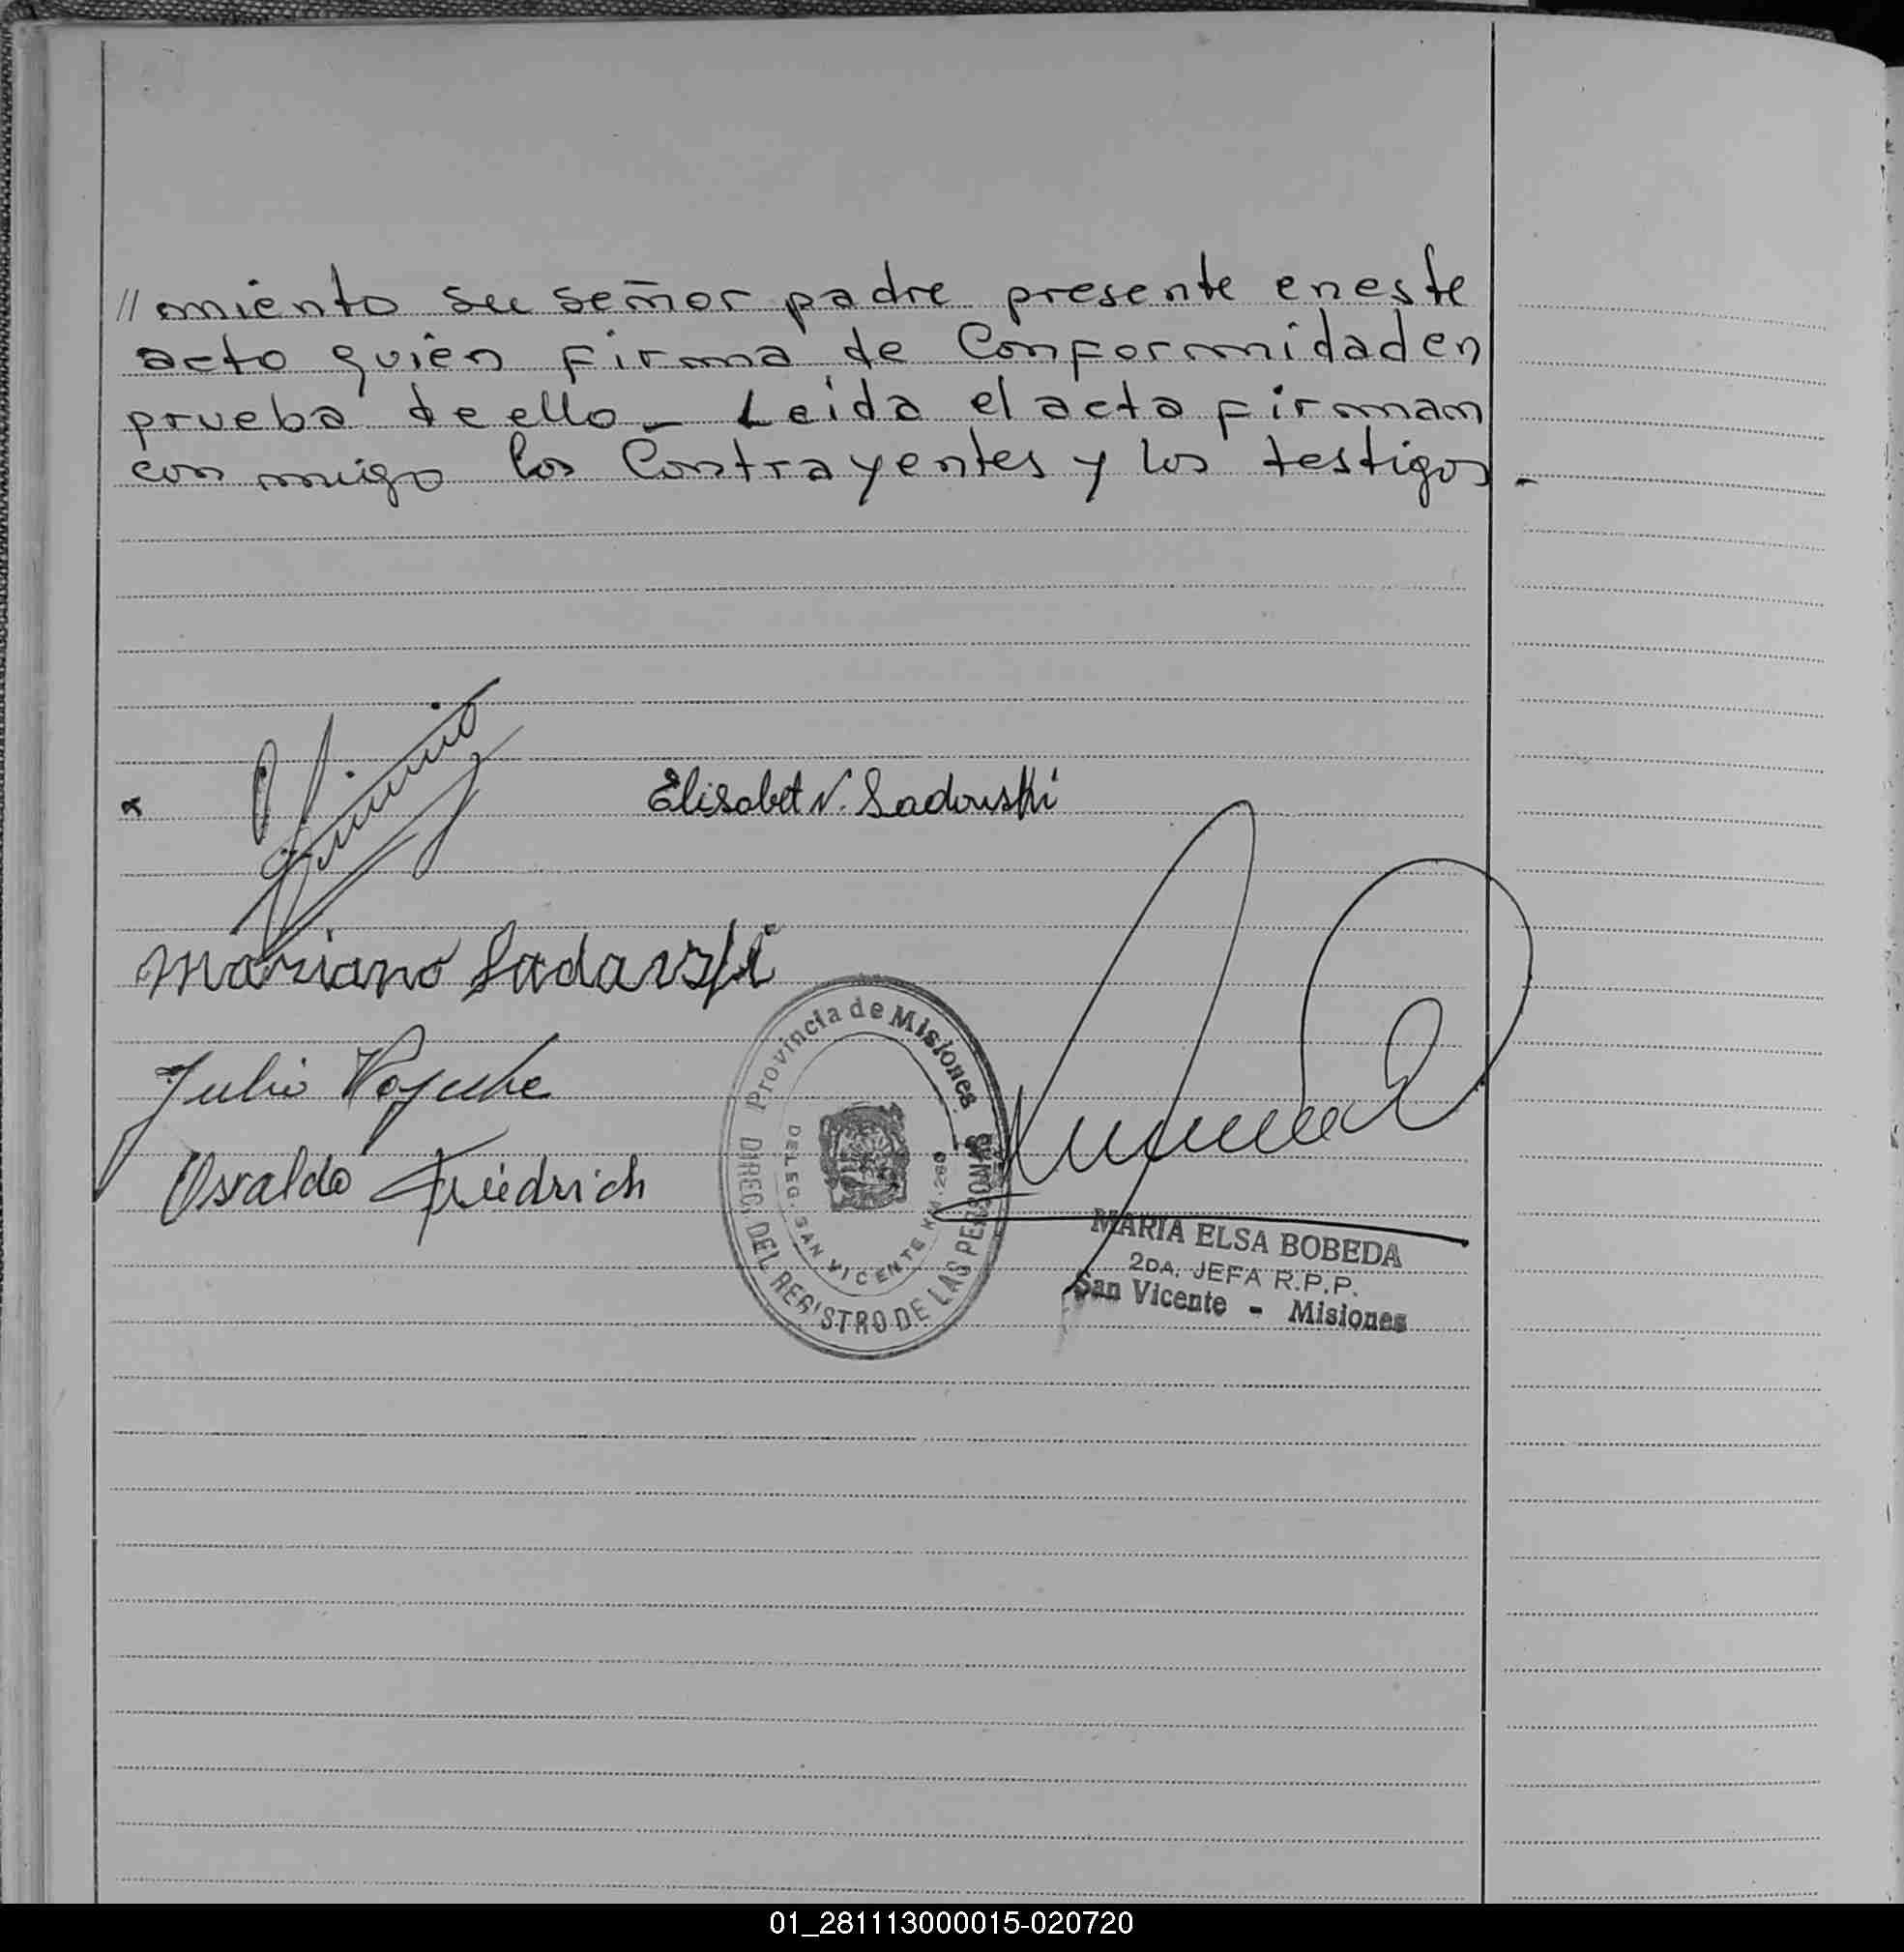 // miento su señor padre presente en este
acto quién firma de Conformidad en
prueba de ello_ Leida el acta firman
con migo los Contrayentes y los testigos.-
Elisabet N. Sadowski
Mariano Sadowski
Julio
Osvaldo Friedrich
Provincia de Misiones
DIREC. DEL REGISTRO DE LAS PERSONAS
DELEG. SAN VICENTE KM. 280
MARIA ELSA BOBEDA
2DA. JEFA R.P.P.
San Vicente - Misiones
01_281113000015-020720